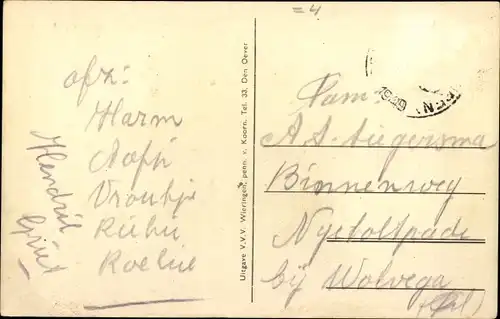 = 4
afz:
Harm
Aafji
Vroukje
Riehu
Roelie
Hendrik
Griet
Uitgave V.V.V. Wieringen, penn. v. Koorn. Tel. 33, Den Oever
1939
Fam:
A. S.
Binnenweg
Nyeholtpade
bij Wolvega